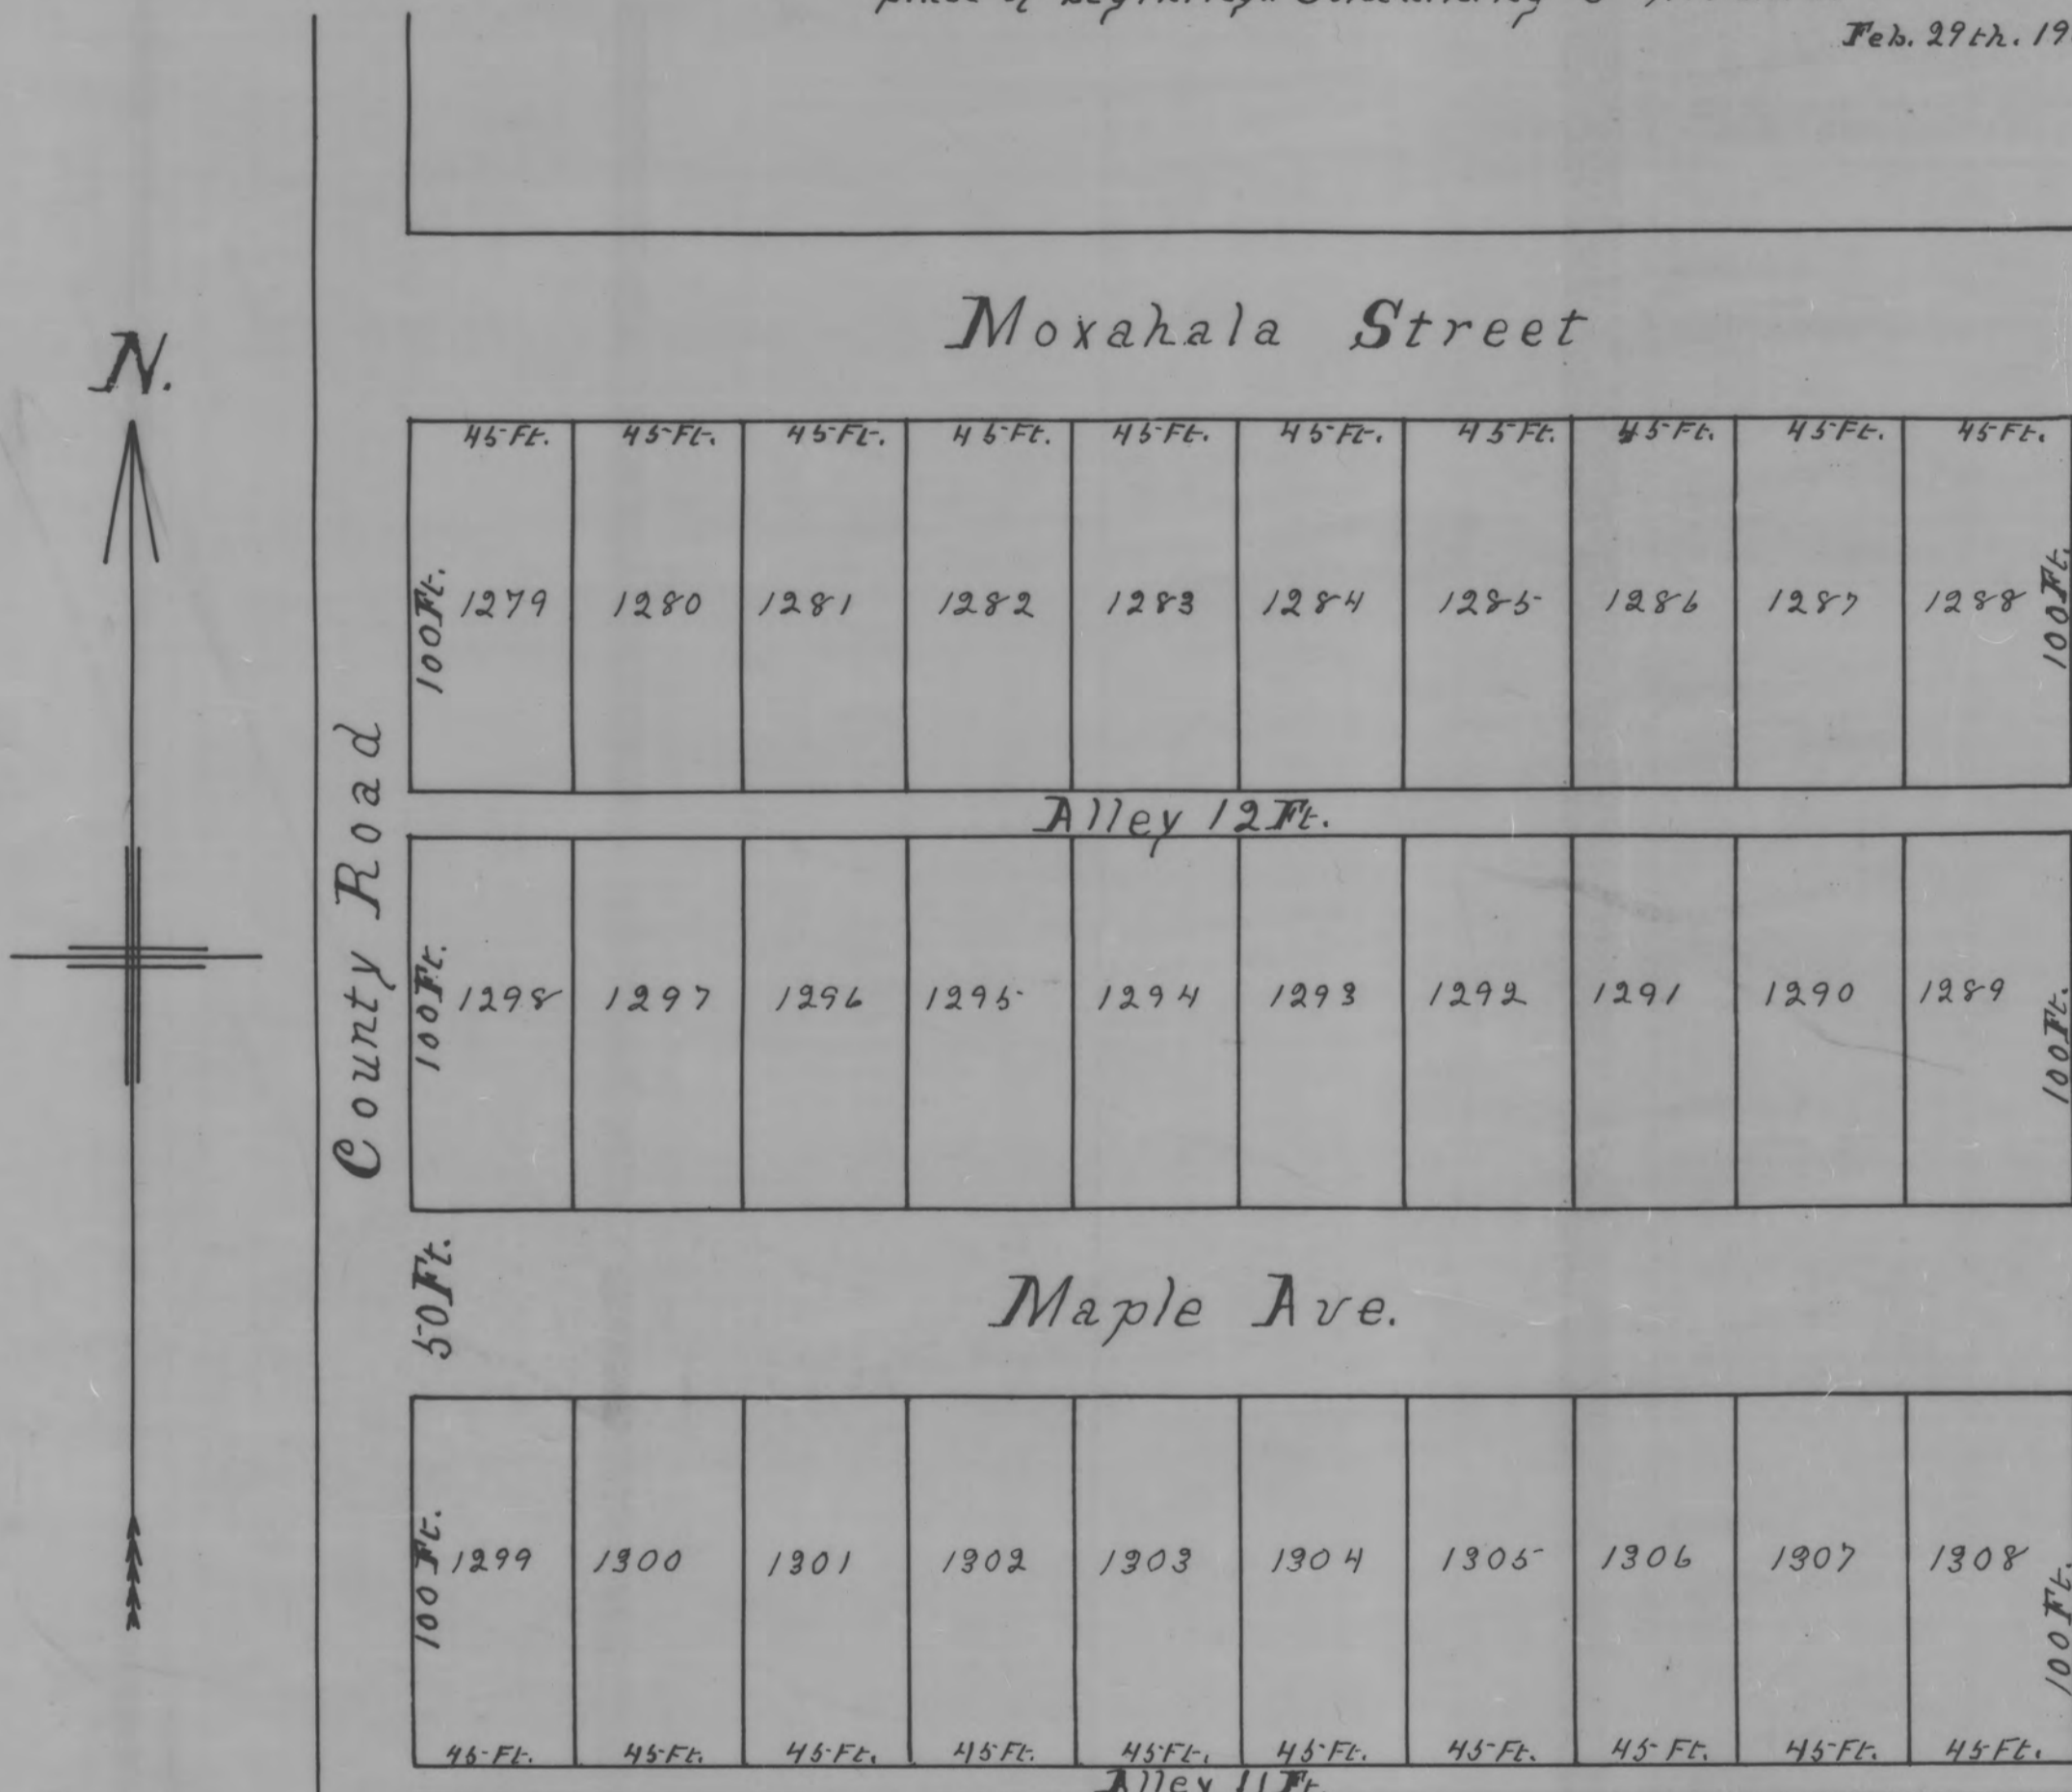 place of beginning.
Feb. 29th. 19
Moxahala Street
N.
45 Ft. 45 Ft. 45 Ft. 45 Ft. 45 Ft. 45 Ft. 45 Ft. 45 Ft. 45 Ft. 45 Ft.
100 Ft. 1279 1280 1281 1282 1283 1284 1285 1286 1287 1288 100 Ft.
County Road
Alley 12 Ft.
100 Ft. 1298 1297 1296 1295 1294 1293 1292 1291 1290 1289 100 Ft.
50 Ft.
Maple Ave.
100 Ft. 1299 1300 1301 1302 1303 1304 1305 1306 1307 1308 100 Ft.
45 Ft. 45 Ft. 45 Ft. 45 Ft. 45 Ft. 45 Ft. 45 Ft. 45 Ft. 45 Ft. 45 Ft.
Alley 11 Ft.